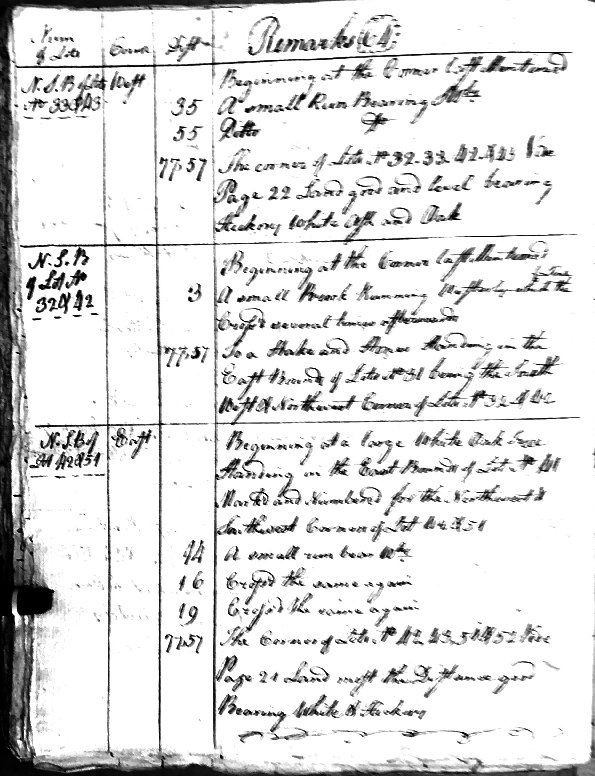 Num of Lots Course Dist. Remarks (24)
N. S. B of Lots West Beginning at the Corner last Mentioned
No 33 & 43 35 A small Run Bearing
55 Ditto Do
77.57 The corner of Lots No 32. 33. 42. & 43 Vide
Page 22 Land good and level bearing
Hickory White Ash and Oak
N. S. B Beginning at the Corner last Mentioned
of Lot No 3 A small Brook Running Westerly which the
32 & 42 Cross'd several times afterwards
77.57 To a Stake and Stones Standing in the
East Bounds of Lots No 31 being the South
West & Northwest Corner of Lots No 32 & 42
N. S. B of East Beginning at a large White Oak Tree
42 & 51 Standing in the East Bounds of Lot No 41
Marked and Numbered for the Northwest &
Southwest Corner of Lot 42 & 51
14 A small run bear
16 Cross'd the same again
19 Cross'd the same again
77.57 The Corner of Lots No 42. 43. 51 & 52 Vide
Page 21 Land most the Distance good
Bearing White & Hickory